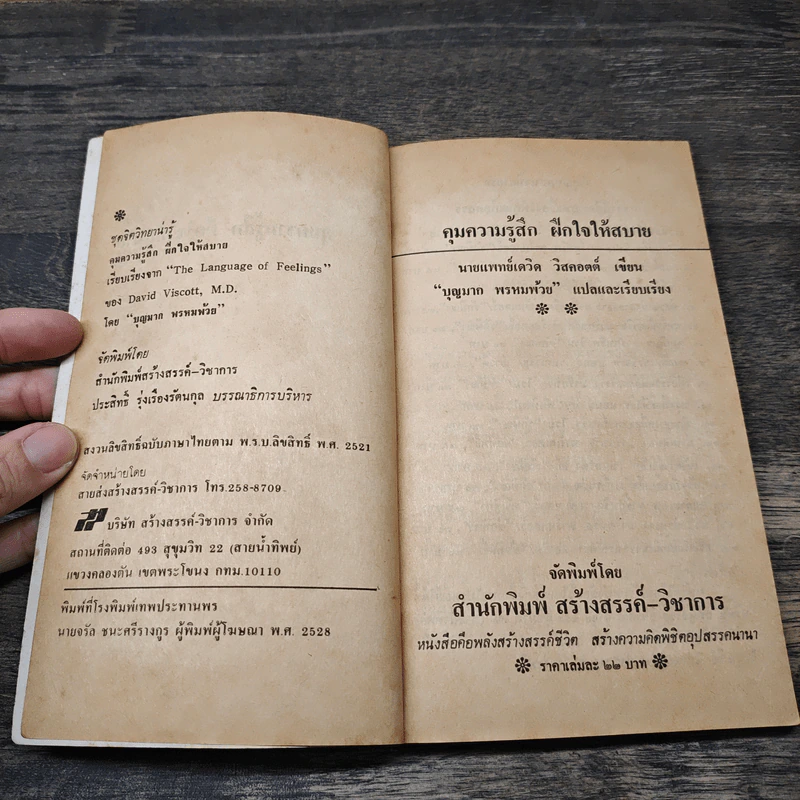 ชุดจิตวิทยาน่ารู้
คุมความรู้สึก ฝึกใจให้สบาย
เรียบเรียงจาก "The Language of Feelings"
ของ David Viscott, M.D.
โดย "บุญมาก พรหมพ้วย"
จัดพิมพ์โดย
สำนักพิมพ์สร้างสรรค์-วิชาการ
ประสิทธิ์ รุ่งเรืองรัตนกุล บรรณาธิการบริหาร
สงวนลิขสิทธิ์ฉบับภาษาไทยตาม พ.ร.บ.ลิขสิทธิ์ พ.ศ. 2521
จัดจำหน่ายโดย
สายส่งสร้างสรรค์-วิชาการ โทร.258-8709
บริษัท สร้างสรรค์-วิชาการ จำกัด
สถานที่ติดต่อ 493 สุขุมวิท 22 (สายน้ำทิพย์)
แขวงคลองตัน เขตพระโขนง กทม.10110
พิมพ์ที่โรงพิมพ์เทพประทานพร
นายจรัล ชนะศรีรางกูร ผู้พิมพ์ผู้โฆษณา พ.ศ. 2528
คุมความรู้สึก ฝึกใจให้สบาย
นายแพทย์เดวิด วิสคอตต์ เขียน
"บุญมาก พรหมพ้วย" แปลและเรียบเรียง
จัดพิมพ์โดย
สำนักพิมพ์ สร้างสรรค์-วิชาการ
หนังสือคือพลังสร้างสรรค์ชีวิต สร้างความคิดพิชิตอุปสรรคนานา
ราคาเล่มละ ๒๒ บาท